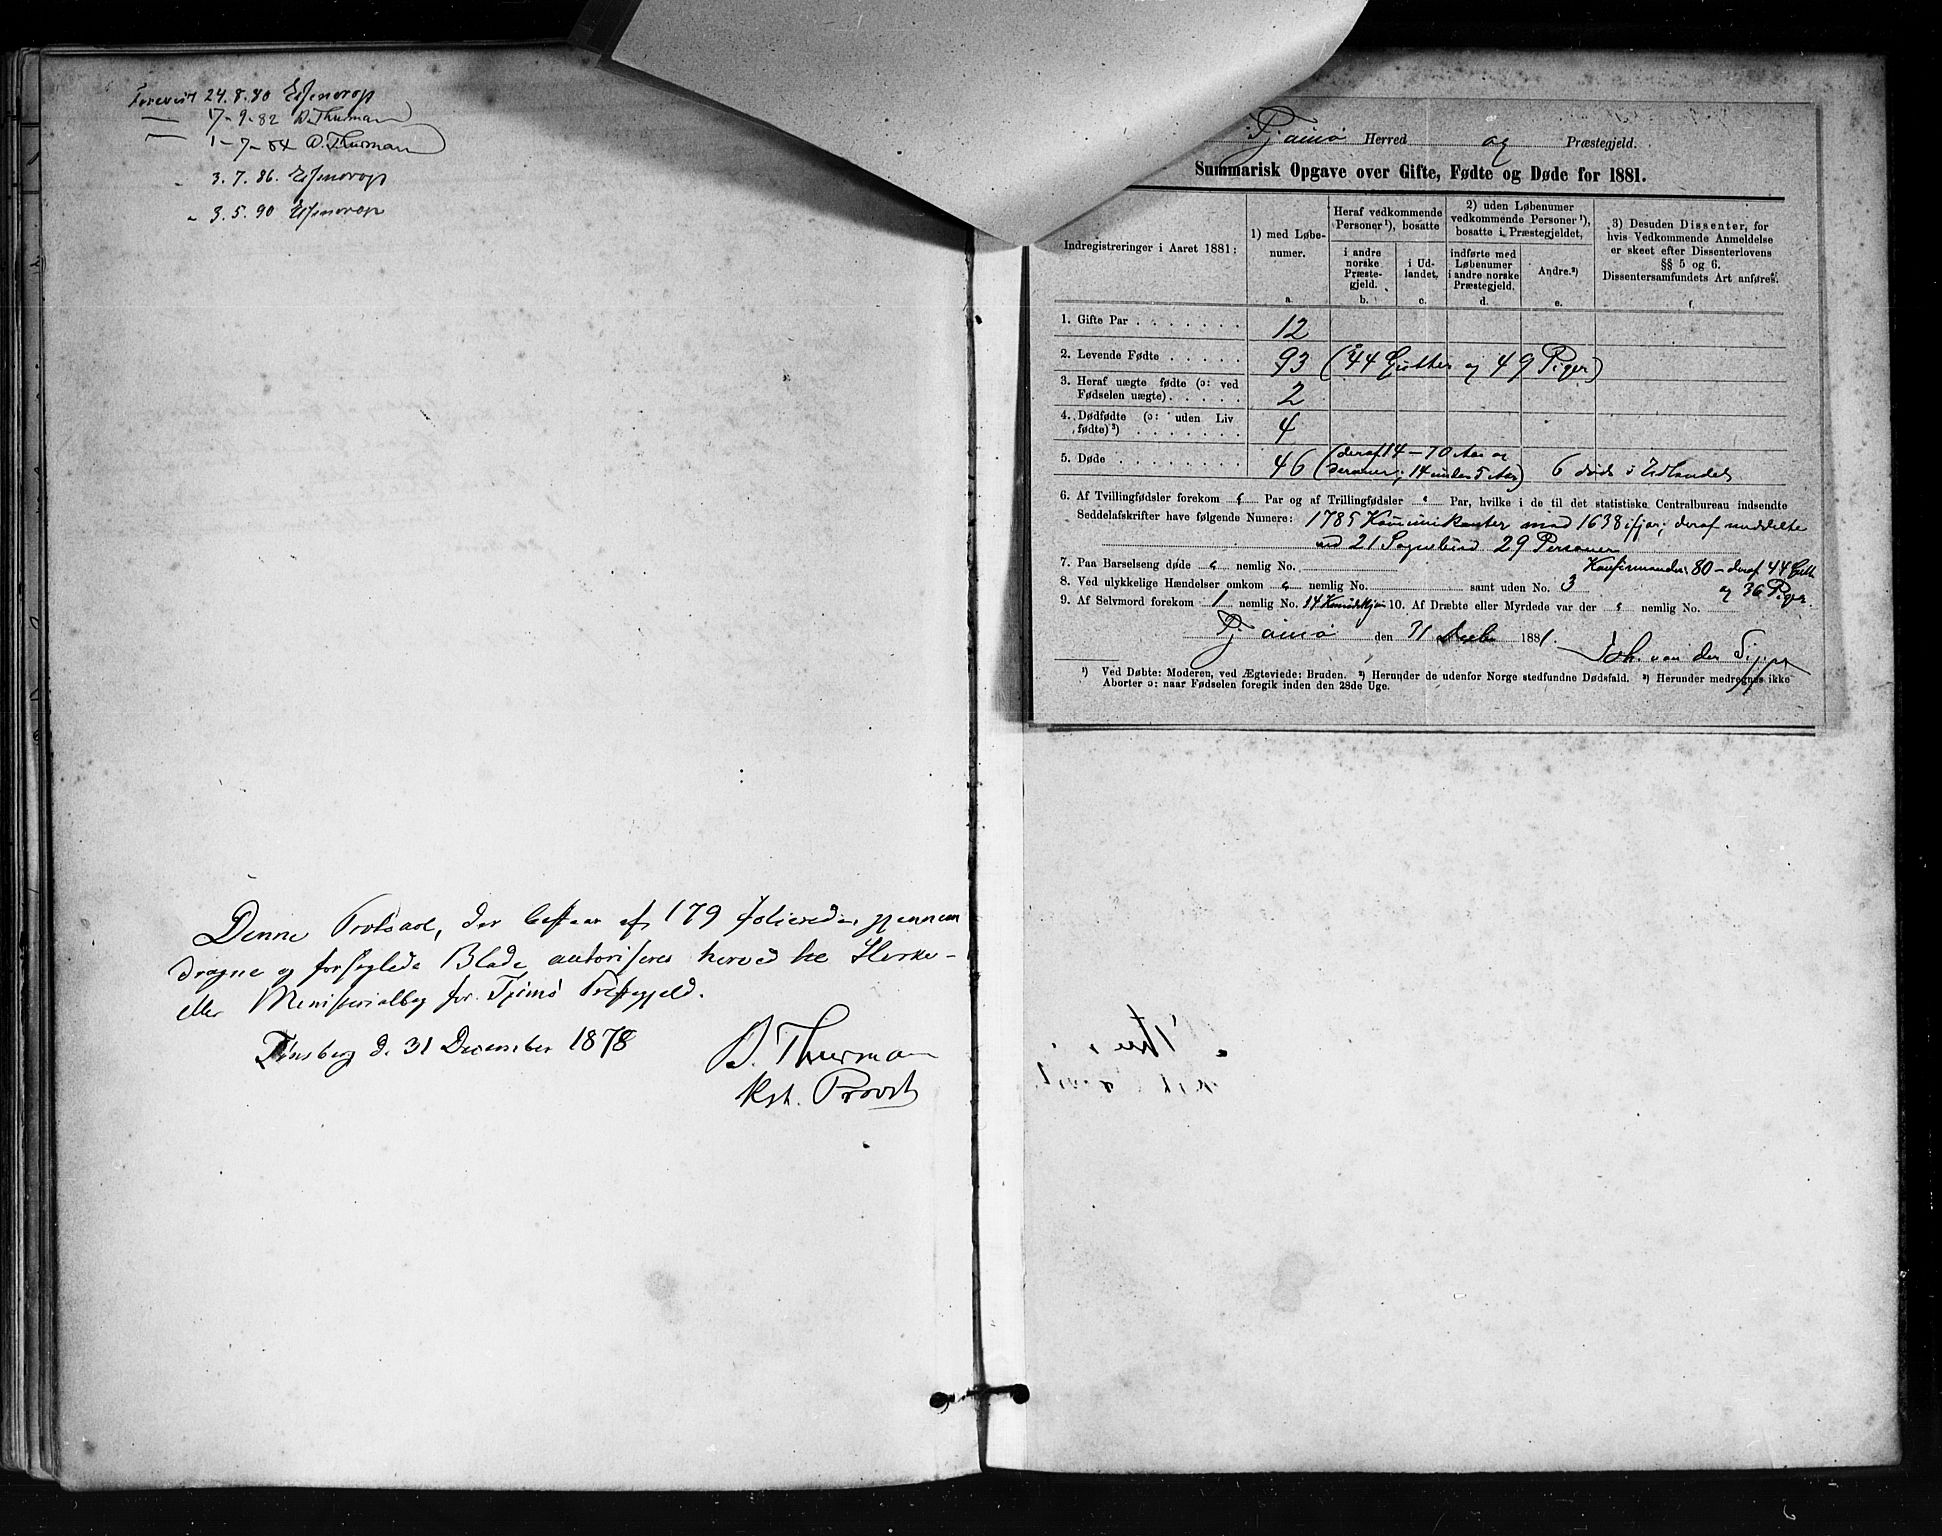 Forevist 24.8.80 Essendrop
— 17-9-82 D. Thurman
— 1-7-84 D. Thurman
" 3.7.86. Essendrop
" 3.5.90 Essendrop
Denne Protocol, der bestaar af 179 folierede, gjennem
dragne og forseglede Blade autoriseres herved til Kirke-
eller Ministerialbog for Tjømø Præstegjeld.
Tønsberg d. 31 December 1878
D. Thurman
Kst. Provst
Tjømø Herred og Præstegjeld.
Summarisk Opgave over Gifte, Fødte og Døde for 1881.
Indregistreringer i Aaret 1881:
1) med Løbe-
numer.
a.
Heraf vedkommende
Personer¹), bosatte
i andre
norske
Præste-
gjeld.
b.
i Ud-
landet.
c.
2) uden Løbenumer
vedkommende Personer¹),
bosatte i Præstegjeldet,
indførte med
Løbenumer
i andre norske
Præstegjeld.
d.
Andre.²)
e.
3) Desuden Dissenter, for
hvis Vedkommende Anmeldelse
er skeet efter Dissenterlovens
§§ 5 og 6.
Dissentersamfundets Art anføres.
f.
1. Gifte Par . . . . . . . 12
2. Levende Fødte . . . . . 93 (44 Gutter og 49 Piger)
3. Heraf uægte fødte (ɔ: ved
Fødselen uægte) . . . . . 2
4. Dødfødte (ɔ: uden Liv
fødte)³) . . . . . . . 4
5. Døde . . . . . . . . 46 (deraf 14 – 70 Aar og
derover; 14 under 5 Aar) 6 døde i Udlandet
6. Af Tvillingfødsler forekom " Par og af Trillingfødsler " Par, hvilke i de til det statistiske Centralbureau indsendte
Seddelafskrifter have følgende Numere: 1785 Kommunikanter mod 1638 ifjor; deraf meddelte
ved 21 Sognebud 29 Personer
7. Paa Barselseng døde " nemlig No. Konfirmander: 80 – deraf 44 Gutt.
8. Ved ulykkelige Hændelser omkom " nemlig No. samt uden No. 3 og 36 Piger.
9. Af Selvmord forekom 1 nemlig No. 14 10. Af Dræbte eller Myrdede var der " nemlig No.
Tjømø den 31 Decbr 1881.
Joh. van der
¹) Ved Døbte: Moderen, ved Ægteviede: Bruden. ²) Herunder de udenfor Norge stedfundne Dødsfald. ³) Herunder medregnes ikke
Aborter ɔ: naar Fødselen foregik inden den 28de Uge.